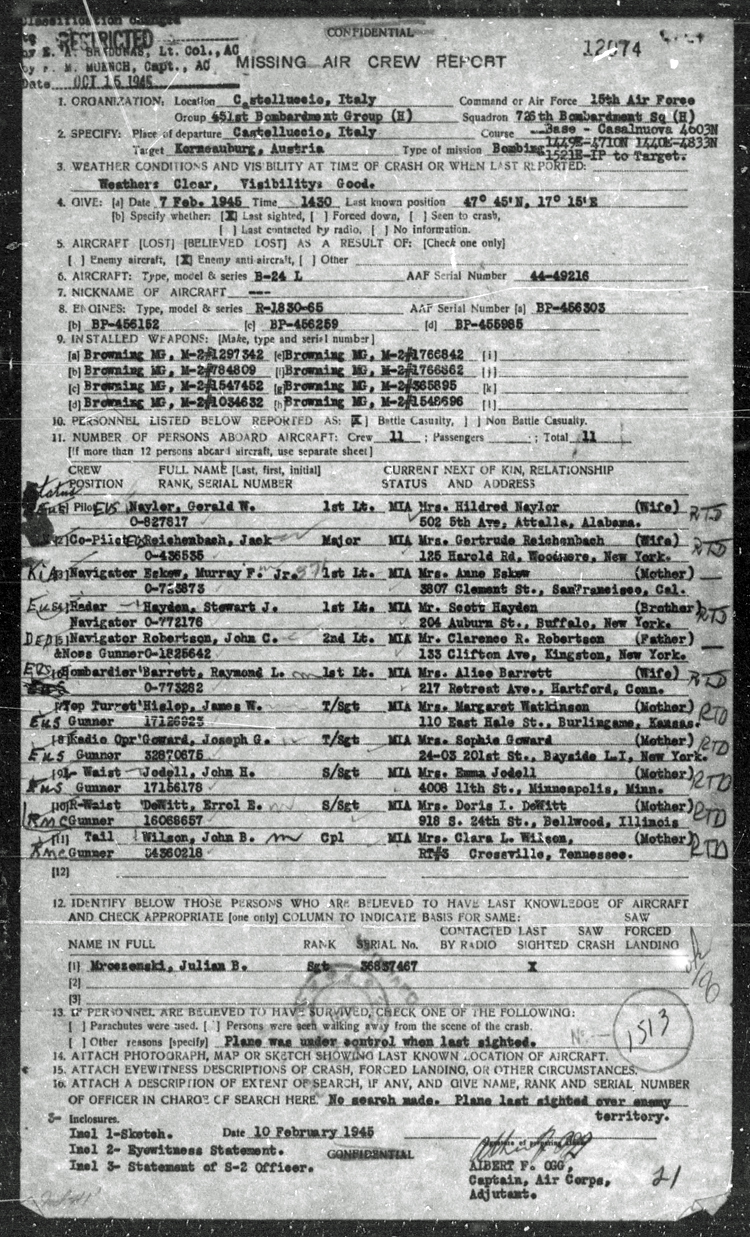 Classification changed
to RESTRICTED
by E. A. BRADUNAS, Lt. Col., AC
by F. M. MUENCH, Capt., AC
Date OCT 15 1945
CONFIDENTIAL
12074
MISSING AIR CREW REPORT
1. ORGANIZATION: Location Castelluccio, Italy Command or Air Force 15th Air Force
Group 451st Bombardment Group (H) Squadron 726th Bombardment Sq (H)
2. SPECIFY: Place of departure Castelluccio, Italy Course Base - Casalnuova 4603N
Target Korneauburg, Austria Type of mission Bombing 1449E-4710N 1440E-4833N
1521E-IP to Target.
3. WEATHER CONDITIONS AND VISIBILITY AT TIME OF CRASH OR WHEN LAST REPORTED:
Weather: Clear, Visibility: Good.
4. GIVE: [a] Date 7 Feb. 1945 Time 1430 Last known position 47° 45'N, 17° 15'E
[b] Specify whether: [X] Last sighted, [ ] Forced down, [ ] Seen to crash,
[ ] Last contacted by radio, [ ] No information.
5. AIRCRAFT [LOST] [BELIEVED LOST] AS A RESULT OF: [Check one only]
[ ] Enemy aircraft, [X] Enemy anti-aircraft, [ ] Other
6. AIRCRAFT: Type, model & series B-24 L AAF Serial Number 44-49216
7. NICKNAME OF AIRCRAFT ---
8. ENGINES: Type, model & series R-1830-65 AAF Serial Number [a] BP-456303
[b] BP-456152 [c] BP-456259 [d] BP-455985
9. INSTALLED WEAPONS: [Make, type and serial number]
[a] Browning MG, M-2#1297342 [e] Browning MG, M-2#1766842 [i]
[b] Browning MG, M-2#784809 [f] Browning MG, M-2#1766862 [j]
[c] Browning MG, M-2#1547452 [g] Browning MG, M-2#365895 [k]
[d] Browning MG, M-2#1034632 [h] Browning MG, M-2#1548696 [l]
10. PERSONNEL LISTED BELOW REPORTED AS: [X] Battle Casualty, [ ] Non Battle Casualty.
11. NUMBER OF PERSONS ABOARD AIRCRAFT: Crew 11 ; Passengers ; Total 11
[If more than 12 persons aboard aircraft, use separate sheet]
CREW FULL NAME [Last, first, initial] CURRENT NEXT OF KIN, RELATIONSHIP
POSITION RANK, SERIAL NUMBER STATUS AND ADDRESS
Status
EUS Pilot Naylor, Gerald W. 1st Lt. MIA Mrs. Hildred Naylor (Wife) RTD
O-827817 502 5th Ave, Attalla, Alabama.
[2] Co-Pilot Reichenbach, Jack Major MIA Mrs. Gertrude Reichenbach (Wife) RTD
O-436535 125 Harold Rd, Woodmere, New York.
KIA [3] Navigator Eskew, Murray F. Jr. 1st Lt. MIA Mrs. Anne Eskew (Mother) —
3807 Clement St., San Francisco, Cal.
EUS [4] Radar Hayden, Stewart J. 1st Lt. MIA Mr. Scott Hayden (Brother) RTD
Navigator O-772176 204 Auburn St., Buffalo, New York.
DED [5] Navigator Robertson, John C. 2nd Lt. MIA Mr. Clarence R. Robertson (Father) —
&Nose Gunner O-1825642 133 Clifton Ave, Kingston, New York.
EUS [6] Bombardier Barrett, Raymond L. 1st Lt. MIA Mrs. Alice Barrett (Wife) RTD
O-773282 217 Retreat Ave., Hartford, Conn.
[7] Top Turret Hislop, James W. T/Sgt MIA Mrs. Margaret Watkinson (Mother) RTD
EUS Gunner 17126923 110 East Hale St., Burlingame, Kansas.
[8] Radio Opr Goward, Joseph G. T/Sgt MIA Mrs. Sophie Goward (Mother) RTD
EUS Gunner 32870675 24-03 201st St., Bayside L.I, New York.
[9] L- Waist Jodell, John H. S/Sgt MIA Mrs. Emma Jodell (Mother) RTD
EUS Gunner 17156178 4008 11th St., Minneapolis, Minn.
[10] R-Waist DeWitt, Errol E. S/Sgt MIA Mrs. Doris I. DeWitt (Mother) RTD
RMC Gunner 16068657 918 S. 24th St., Bellwood, Illinois
[11] Tail Wilson, John B. Cpl MIA Mrs. Clara L. Wilson, (Mother) RTD
RMC Gunner 34360218 RT#3 Crossville, Tennessee.
[12]
12. IDENTIFY BELOW THOSE PERSONS WHO ARE BELIEVED TO HAVE LAST KNOWLEDGE OF AIRCRAFT
AND CHECK APPROPRIATE [one only] COLUMN TO INDICATE BASIS FOR SAME: SAW
CONTACTED LAST SAW FORCED
NAME IN FULL RANK SERIAL No. BY RADIO SIGHTED CRASH LANDING
[1] Mroczenski, Julian B. Sgt 36837467 X
[2]
[3]
13. IF PERSONNEL ARE BELIEVED TO HAVE SURVIVED, CHECK ONE OF THE FOLLOWING:
[ ] Parachutes were used. [ ] Persons were seen walking away from the scene of the crash.
[ ] Other reasons [specify] Plane was under control when last sighted.
No — 1513
14. ATTACH PHOTOGRAPH, MAP OR SKETCH SHOWING LAST KNOWN LOCATION OF AIRCRAFT.
15. ATTACH EYEWITNESS DESCRIPTIONS OF CRASH, FORCED LANDING, OR OTHER CIRCUMSTANCES.
16. ATTACH A DESCRIPTION OF EXTENT OF SEARCH, IF ANY, AND GIVE NAME, RANK AND SERIAL NUMBER
OF OFFICER IN CHARGE OF SEARCH HERE. No search made. Plane last sighted over enemy
territory.
3- Inclosures.
Incl 1-Sketch. Date 10 February 1945
Incl 2- Eyewitness Statement.
Incl 3- Statement of S-2 Officer.
CONFIDENTIAL
ALBERT F. OGG,
Captain, Air Corps,
Adjutant.
21